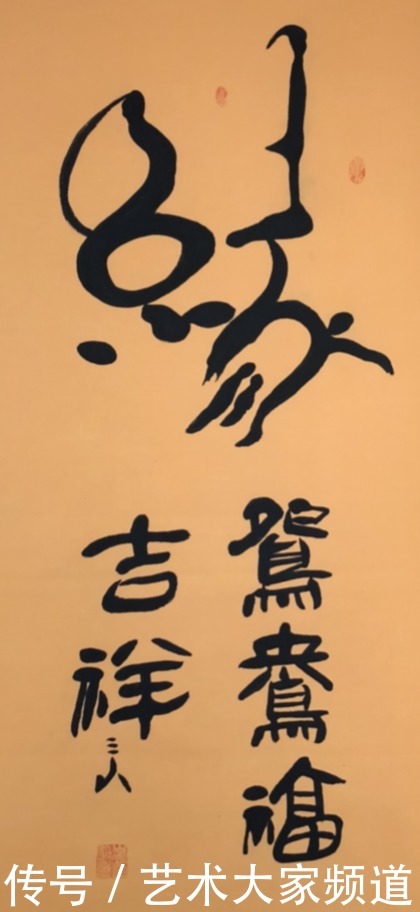 緣
鴛鴦福
吉祥
三人
传号 / 艺术大家频道